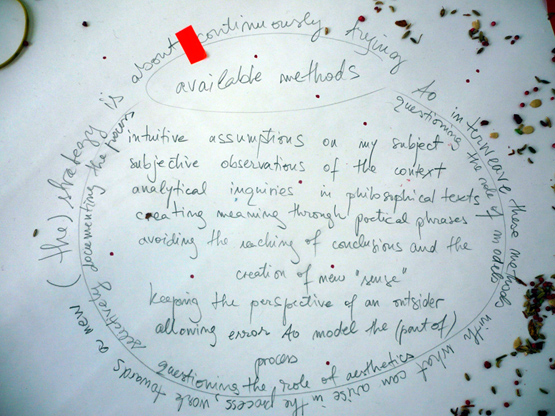 (the) strategy is about continuously trying to interweave these methods with what can arise in the process, work towards a new
available methods
questioning the role of models
intuitive assumptions on my subject
subjective observations of the context
analytical inquiries in philosophical texts
creating meaning through poetical phrases
avoiding the reaching of conclusions and the
creation of new "sense"
keeping the perspective of an outsider
allowing error to model the (part of)
process
questioning the role of aesthetics
selectively documenting the process